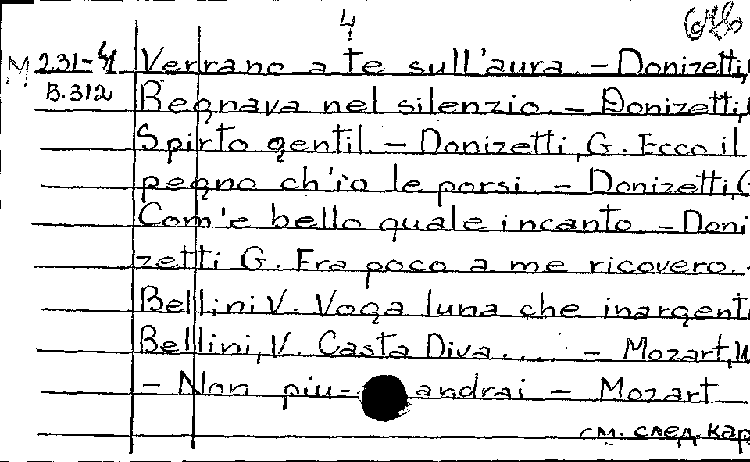 4
M 231-41 Verrano a te sull'aura. - Donizetti,
B.312 Regnava nel silenzio. - Donizetti,
Spirto gentil. - Donizetti, G. Ecco il
pegno ch'io le porsi. - Donizetti, G
Com'e bello quale incanto. - Doni
zetti G. Fra poco a me ricovero. -
Bellini V. Voga luna che inargent
Bellini, V. Casta Diva.... - Mozart, W
- Non piu- andrai - Mozart
см. след. кар